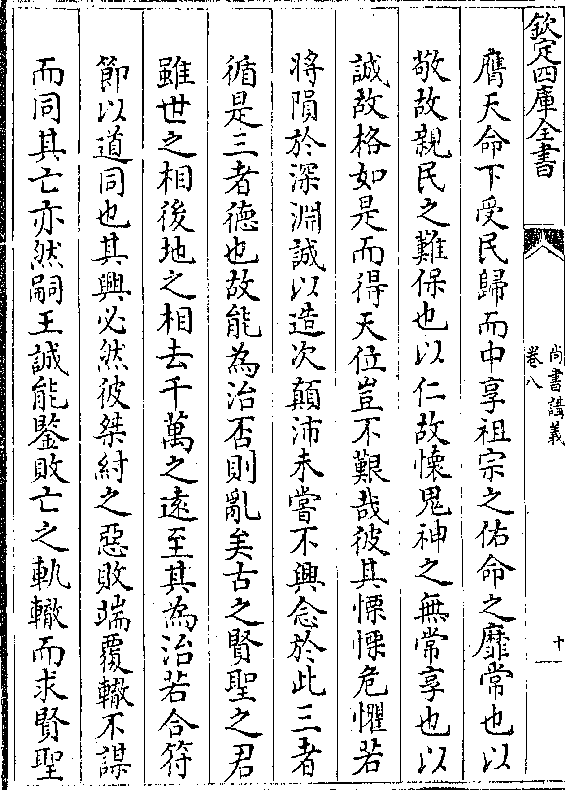 欽定四庫全書
尚書講義
卷八
十
膺天命下受民歸而中享祖宗之佑命之靡常也以
敬故親民之難保也以仁故懷鬼神之無常享也以
誠故格如是而得天位豈不艱哉彼其慄慄危懼若
將隕於深淵誠以造次顛沛未嘗不興念於此三者
循是三者徳也故能為治否則亂矣古之賢聖之君
雖世之相後地之相去千萬之遠至其為治若合符
節以道同也其興必然彼桀紂之惡敗端覆轍不謀
而同其亡亦然嗣王誠能鑒敗亡之軌轍而求賢聖